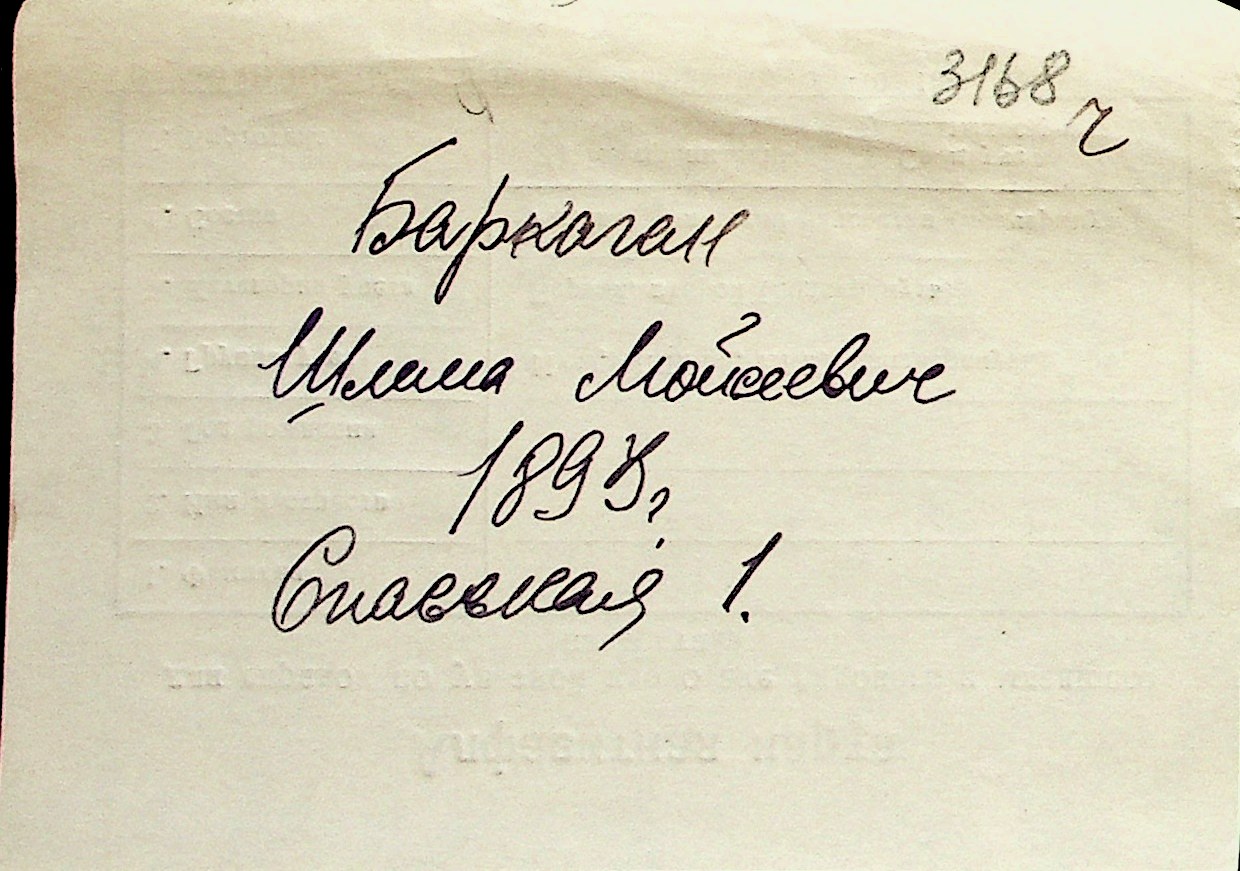 3168 ч
Баркаган
Шлема Мойсеевич
1893 г.
Спаськая 1.